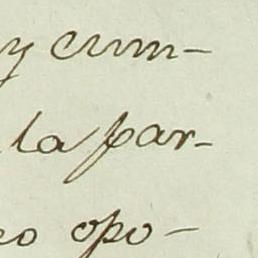 y cum-
la par-
opo-